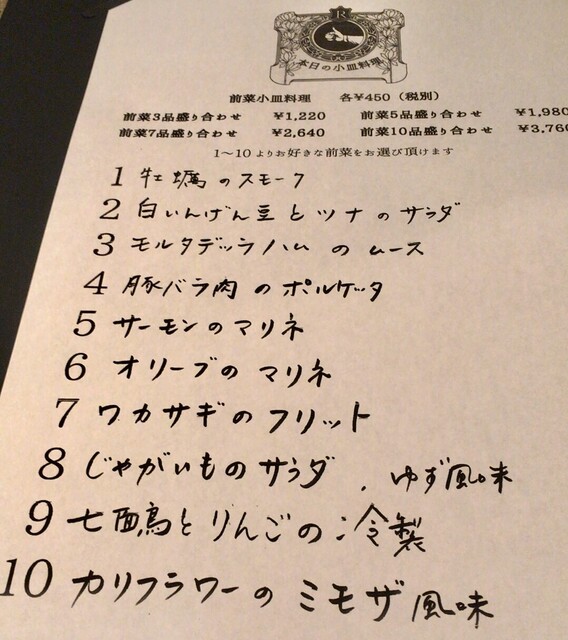 R
本日の小皿料理
前菜小皿料理 各¥450（税別）
前菜3品盛り合わせ ¥1,220 前菜5品盛り合わせ ¥1,980
前菜7品盛り合わせ ¥2,640 前菜10品盛り合わせ ¥3,760
1～10よりお好きな前菜をお選び頂けます
1 牡蠣のスモーク
2 白いんげん豆とツナのサラダ
3 モルタデッラハムのムース
4 豚バラ肉のポルケッタ
5 サーモンのマリネ
6 オリーブのマリネ
7 ワカサギのフリット
8 じゃがいものサラダ、ゆず風味
9 七面鳥とりんごの冷製
10 カリフラワーのミモザ風味